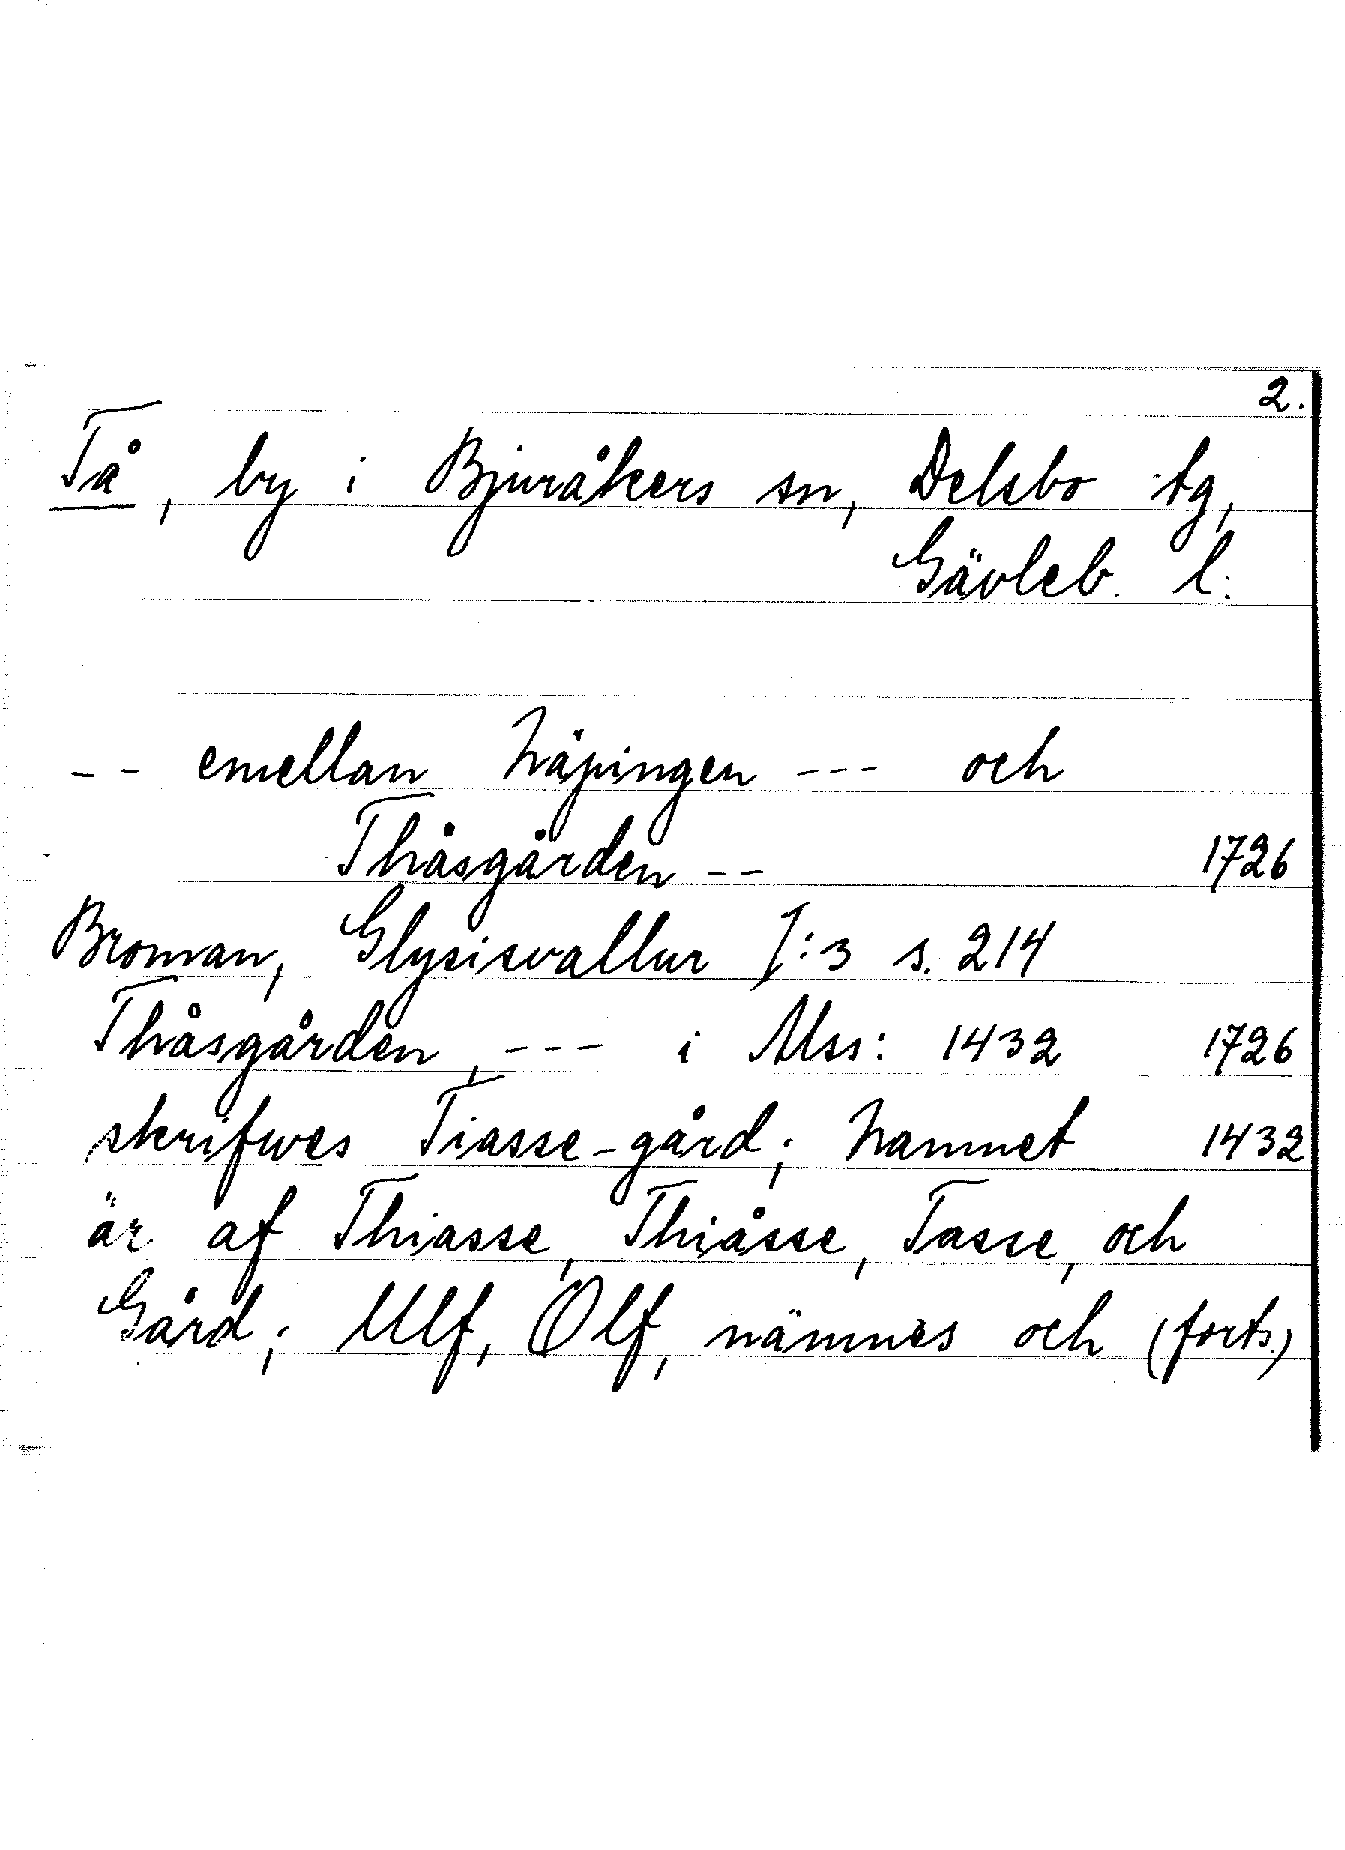 2.
Tå, by i Bjuråkers sn, Delsbo tg,
Gävleb. l.
-- emellan Näpingen --- och
Thåsgården -- 1726
Broman, Glysisvallur I:3 s. 214
Thåsgården, --- i Mss: 1432 1726
skrifwes Tiasse-gård; Namnet 1432
är af Thiasse, Thiåsse, Tasse, och
Gård; Ulf, Olf, nämnes och (forts.)